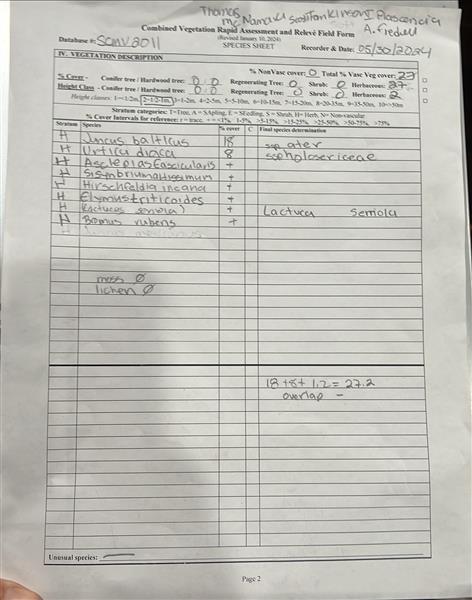 Thomas
McNamara Scott Tomkinson I Plascencia
Combined Vegetation Rapid Assessment and Relevé Field Form
(Revised January 10, 2024)
A. Fredell
SPECIES SHEET
Database #: SCMV2011
Recorder & Date: 05/30/2024
IV. VEGETATION DESCRIPTION
% NonVasc cover: 0 Total % Vasc Veg cover: 27
% Cover - Conifer tree / Hardwood tree: 0 / 0 Regenerating Tree: 0 Shrub: 0 Herbaceous: 27
Height Class - Conifer tree / Hardwood tree: 0 / 0 Regenerating Tree: 0 Shrub: 0 Herbaceous: 2
Height classes: 1=<1/2m, 2=1/2-1m, 3=1-2m, 4=2-5m, 5=5-10m, 6=10-15m, 7=15-20m, 8=20-35m, 9=35-50m, 10=>50m
Stratum categories: T=Tree, A = SApling, E = SEedling, S = Shrub, H= Herb, N= Non-vascular
% Cover Intervals for reference: r = trace, + = <1%, 1-5%, >5-15%, >15-25%, >25-50%, >50-75%, >75%
Stratum Species % cover C Final species determination
H Juncus balticus 18 ssp ater
H Urtica dioica 8 ssp holosericeae
H Asclepias fascicularis +
H Sisymbrium altissimum +
H Hirschfeldia incana +
H Elymus triticoides +
H + Lactuca serriola
H Bromus rubens +
H
moss 0
lichen 0
18 + 8 + 1.2 = 27.2
overlap -
Unusual species:
Page 2